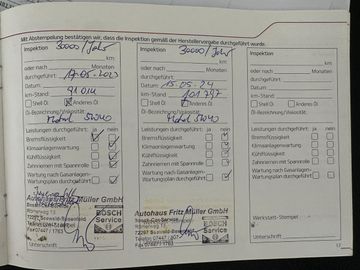 Mit Abstempelung bestätigen wir, dass die Inspektion gemäß der Herstellervorgabe durchgeführt wurde.
Inspektion 30000/Jahr
km
oder nach Monaten
durchgeführt: 17.05.2023
Datum
km-Stand: 91014
Shell Öl Anderes Öl
Öl-Bezeichnung/Viskosität:
5W40
Leistungen durchgeführt: ja nein
Bremsflüssigkeit
Klimaanlagenwartung
Kühlflüssigkeit
Zahnriemen mit Spannrolle
Wartung nach Gasanlagen-
Wartungsplan durchgeführt
Autohaus Fritz Müller GmbH
Römerweg 13
72297 Seewald-Besenfeld
BOSCH
Service
Unterschrift
Inspektion 30000/Jahr
km
oder nach Monaten
durchgeführt:
Datum 15.05.24
km-Stand: 101797
Shell Öl Anderes Öl
Öl-Bezeichnung/Viskosität:
5W40
Leistungen durchgeführt: ja nein
Bremsflüssigkeit
Klimaanlagenwartung
Kühlflüssigkeit
Zahnriemen mit Spannrolle
Wartung nach Gasanlagen-
Wartungsplan durchgeführt
Autohaus Fritz Müller GmbH
Römerweg 13
72297 Seewald-Besenfeld
BOSCH
Service
Unterschrift
Inspektion
km
oder nach Monaten
durchgeführt:
Datum
km-Stand:
Shell Öl Anderes Öl
Öl-Bezeichnung/Viskosität:
Leistungen durchgeführt: ja nein
Bremsflüssigkeit
Klimaanlagenwartung
Kühlflüssigkeit
Zahnriemen mit Spannrolle
Wartung nach Gasanlagen-
Wartungsplan durchgeführt
Werkstatt-Stempel
Unterschrift